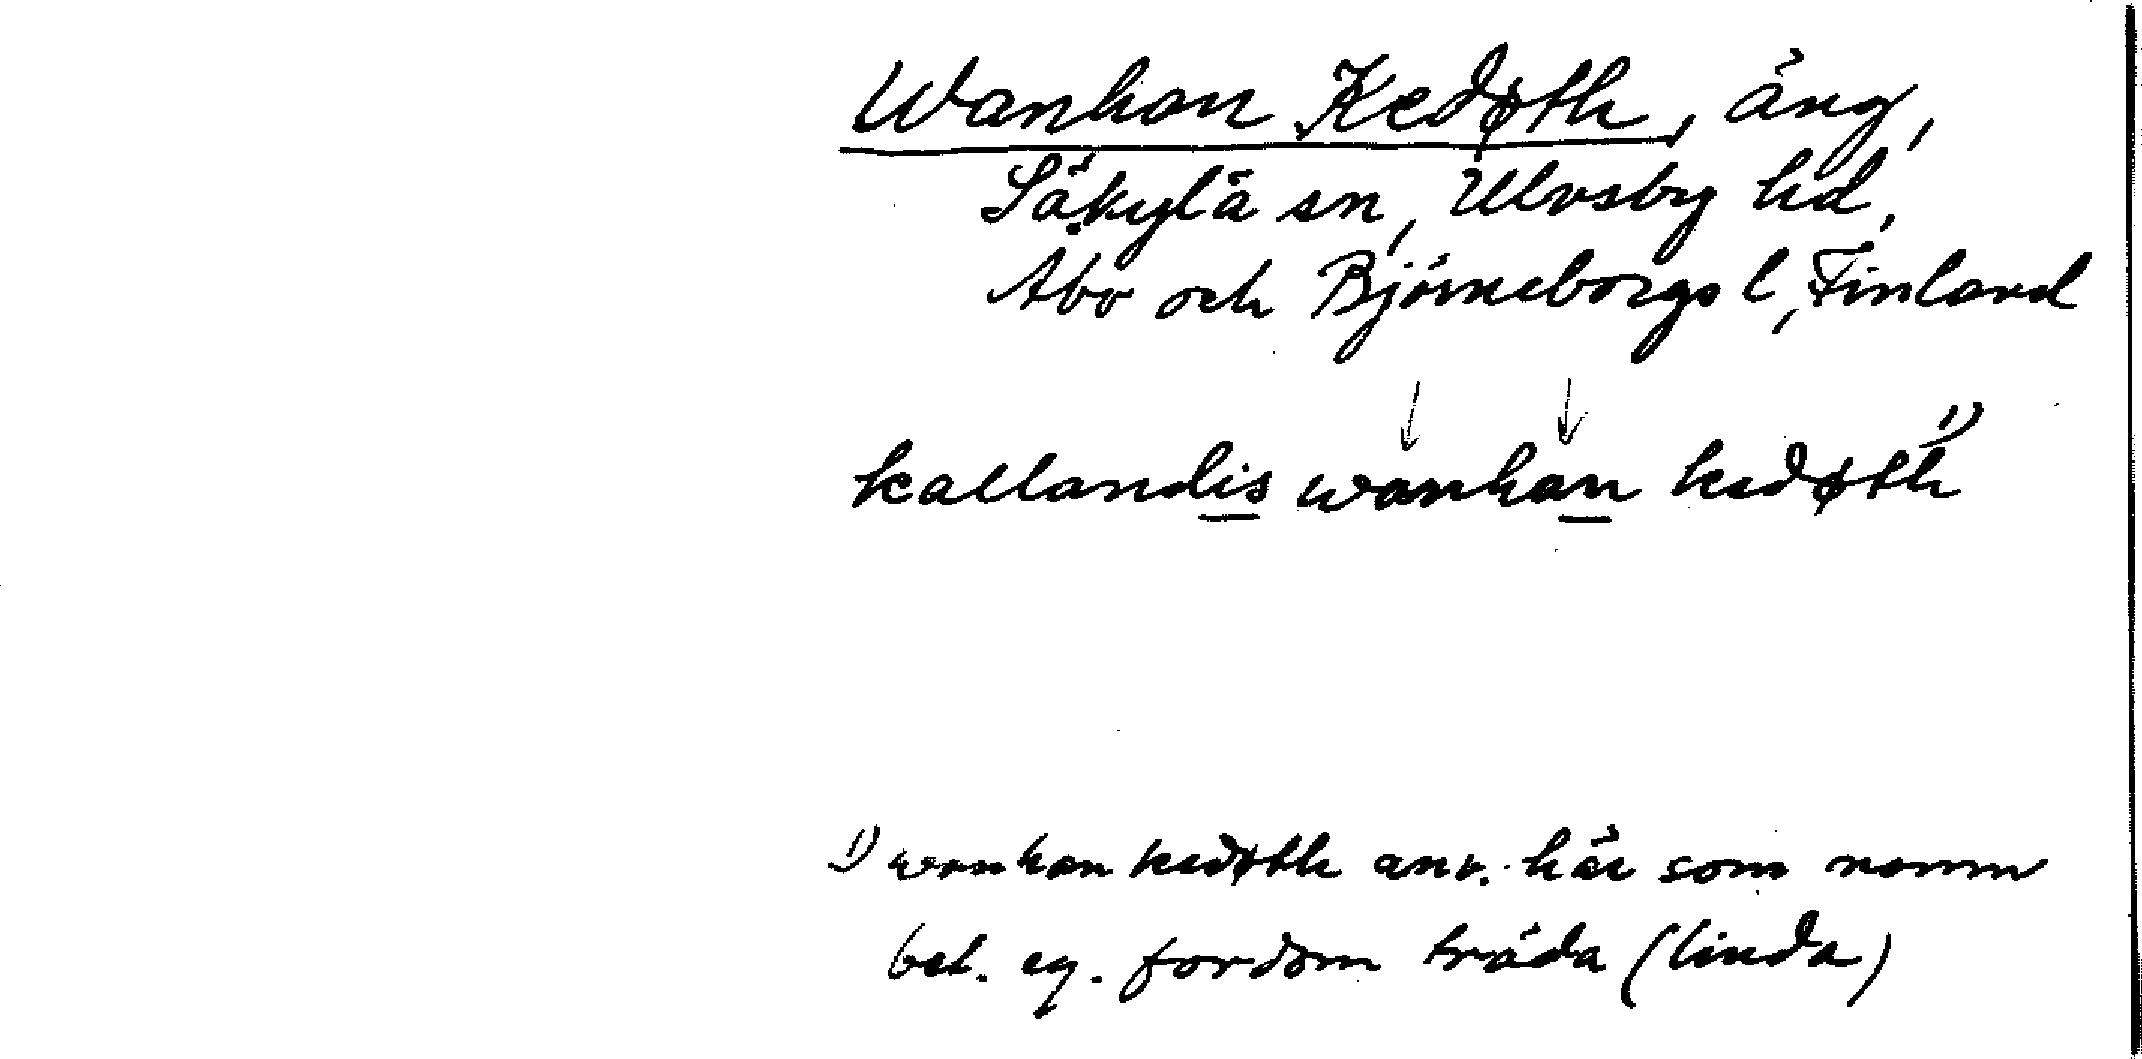 Wanhan Kedøth, äng,
Säkylä sn, Ulvsby hd,
Åbo och Björneborgs l, Finland
kallandis wanhan kedøth 1)
1) wanhan kedøth anv. här som namn
bet. eg. fordom träda (linda)